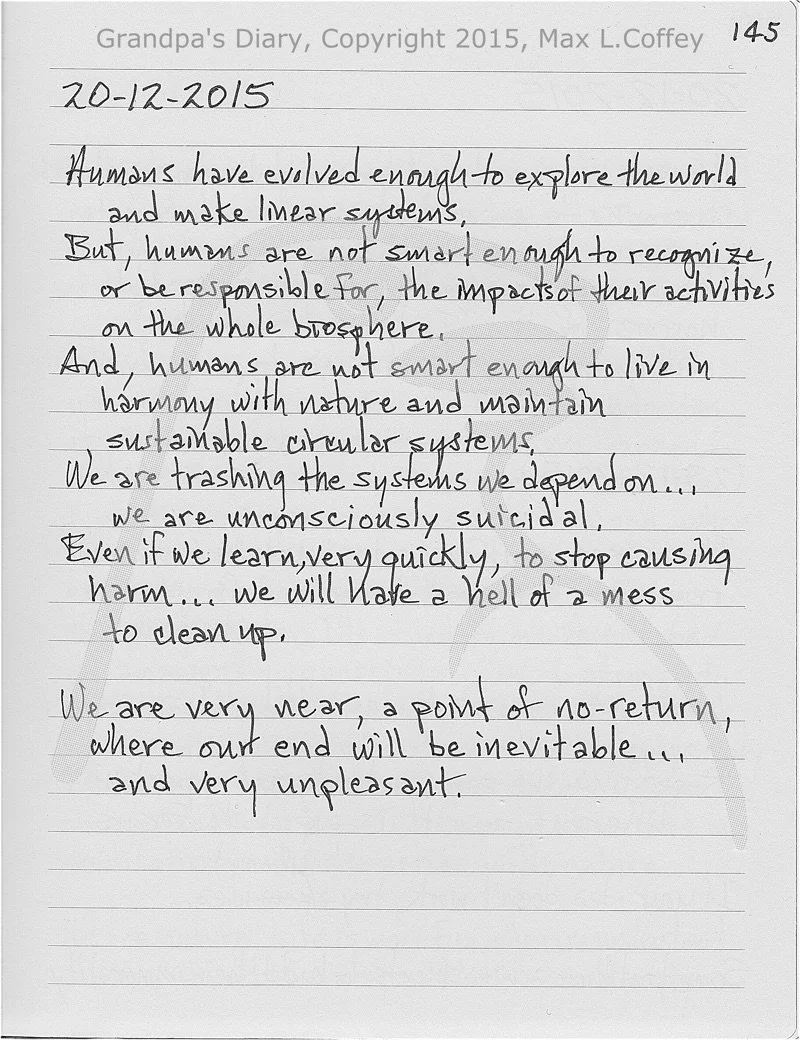 Grandpa's Diary, Copyright 2015, Max L.Coffey
145
20-12-2015
Humans have evolved enough to explore the world
and make linear systems.
But, humans are not smart enough to recognize,
or be responsible for, the impacts of their activities
on the whole biosphere.
And, humans are not smart enough to live in
harmony with nature and maintain
sustainable circular systems.
We are trashing the systems we depend on...
we are unconsciously suicidal.
Even if we learn, very quickly, to stop causing
harm... we will have a hell of a mess
to clean up.
We are very near, a point of no-return,
where our end will be inevitable...
and very unpleasant.